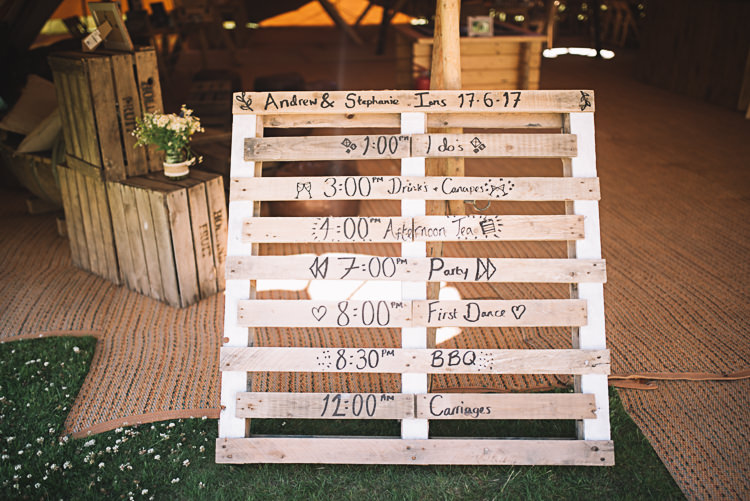 Andrew & Stephanie Inns 17·6·17
1:00PM I do's
3:00PM Drinks + Canapes
4:00PM Afternoon Tea
7:00PM Party
8:00PM First Dance
8:30PM BBQ
12:00AM Carriages
FRUIT